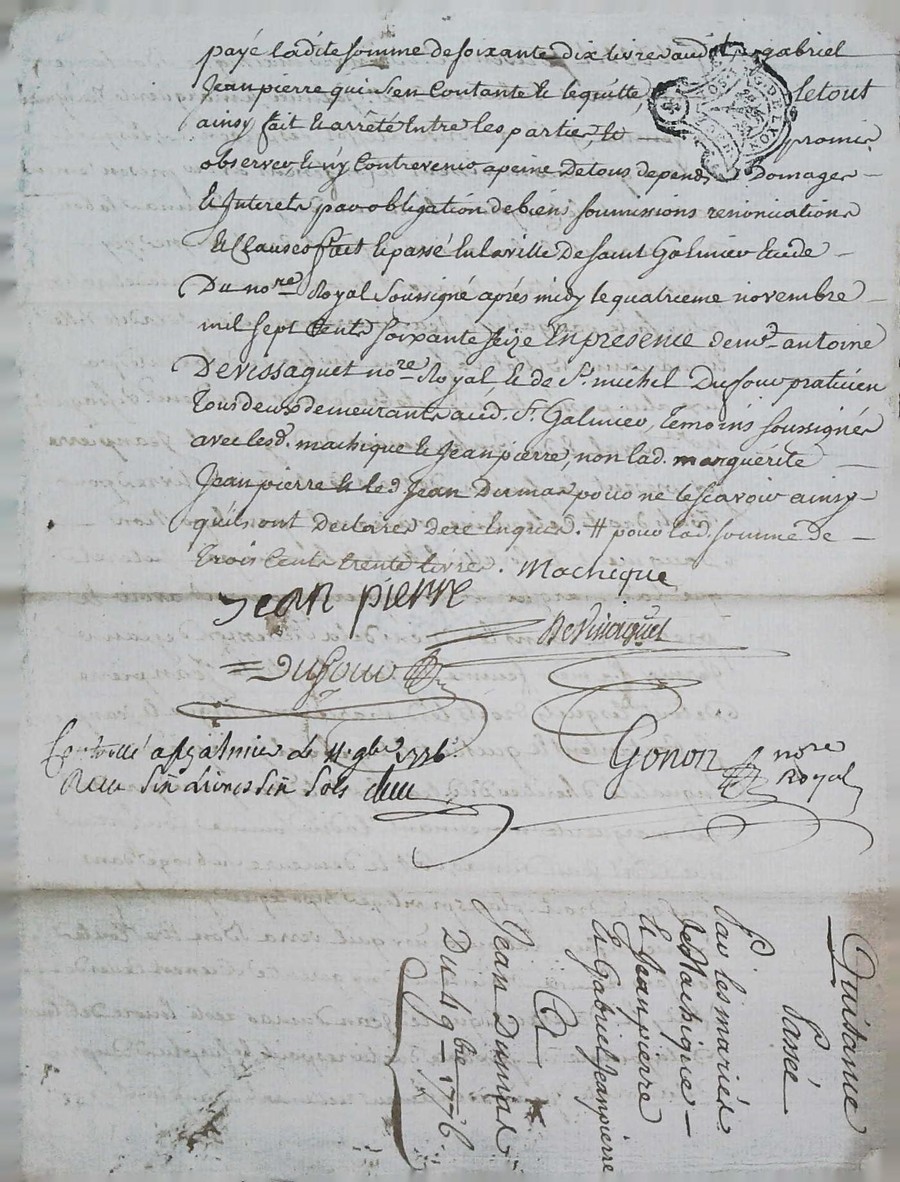 payé ladite somme de soixante dix livres aud. gabriel
Jeanpierre qui s'en Contante & le quitte, le tout
ainsy fait & arrété Entre les parties, promis
observer, & n'y Contrevenir a peine De tous depends Domages
& Interets par obligation de biens soumissions renonciations
& Clauses fait & passé En la ville De saint Galmier Etude
Du nore. Royal soussigné aprés midy le quatrieme novembre
mil sept Cents soixante seize En presence de mr. antoine
Devissaguet nore. Royal & de Sr. michel Dufour praticien
Tous deux demeurants aud. St. Galmier, Temoins soussignés
avec lesd. machique & Jeanpierre, non lad. marguerite
Jeanpierre & led. Jean Dumas pour ne le scavoir ainsy
quils ont Declarés De ce Enquis. # pour lad. somme de
Trois Cents trente Livres. Machique
Jean pierre
Devissaguet
Dufour
Gonon nore Royal
Controllé a St galmier le 11 9bre 1776
Recu Six Livres Six Sols
Quitance
Passée
P.
Par les mariés
de Machique
& Jeanpierre
& Gabriel Jeanpierre
A
Jean Dumas
Du 4 9bre 1776.